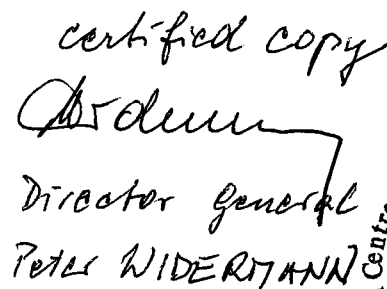 certified copy
Director General
Peter WIDERMANN
Centre